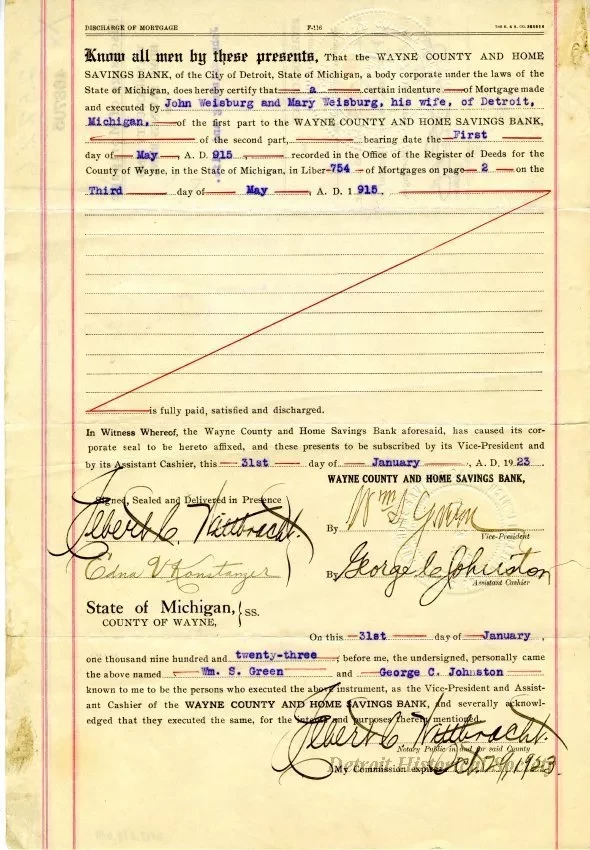 DISCHARGE OF MORTGAGE F-116
Know all men by these presents, That the WAYNE COUNTY AND HOME
SAVINGS BANK, of the City of Detroit, State of Michigan, a body corporate under the laws of the
State of Michigan, does hereby certify that a certain indenture of Mortgage made
and executed by John Weisburg and Mary Weisburg, his wife, of Detroit,
Michigan, of the first part to the WAYNE COUNTY AND HOME SAVINGS BANK,
of the second part, bearing date the First
day of May A. D. 915 , recorded in the Office of the Register of Deeds for the
County of Wayne, in the State of Michigan, in Liber 754 of Mortgages on page 2 on the
Third day of May , A. D. 1 915.
is fully paid, satisfied and discharged.
In Witness Whereof, the Wayne County and Home Savings Bank aforesaid, has caused its cor-
porate seal to be hereto affixed, and these presents to be subscribed by its Vice-President and
by its Assistant Cashier, this 31st day of January , A. D. 19 23.
WAYNE COUNTY AND HOME SAVINGS BANK,
Signed, Sealed and Delivered in Presence
Albert C. Wittbracht.
By Wm S Green
Vice-President
Edna V Konstanzer
By George C Johnston
Assistant Cashier
State of Michigan, } ss.
COUNTY OF WAYNE,
On this 31st day of January ,
one thousand nine hundred and twenty-three , before me, the undersigned, personally came
the above named Wm. S. Green and George C. Johnston
known to me to be the persons who executed the above instrument, as the Vice-President and Assist-
ant Cashier of the WAYNE COUNTY AND HOME SAVINGS BANK, and severally acknowl-
edged that they executed the same, for the intents and purposes therein mentioned.
Albert C Wittbracht.
Notary Public in and for said County
Detroit Historical Society
My Commission expires Feb 29, 1923.